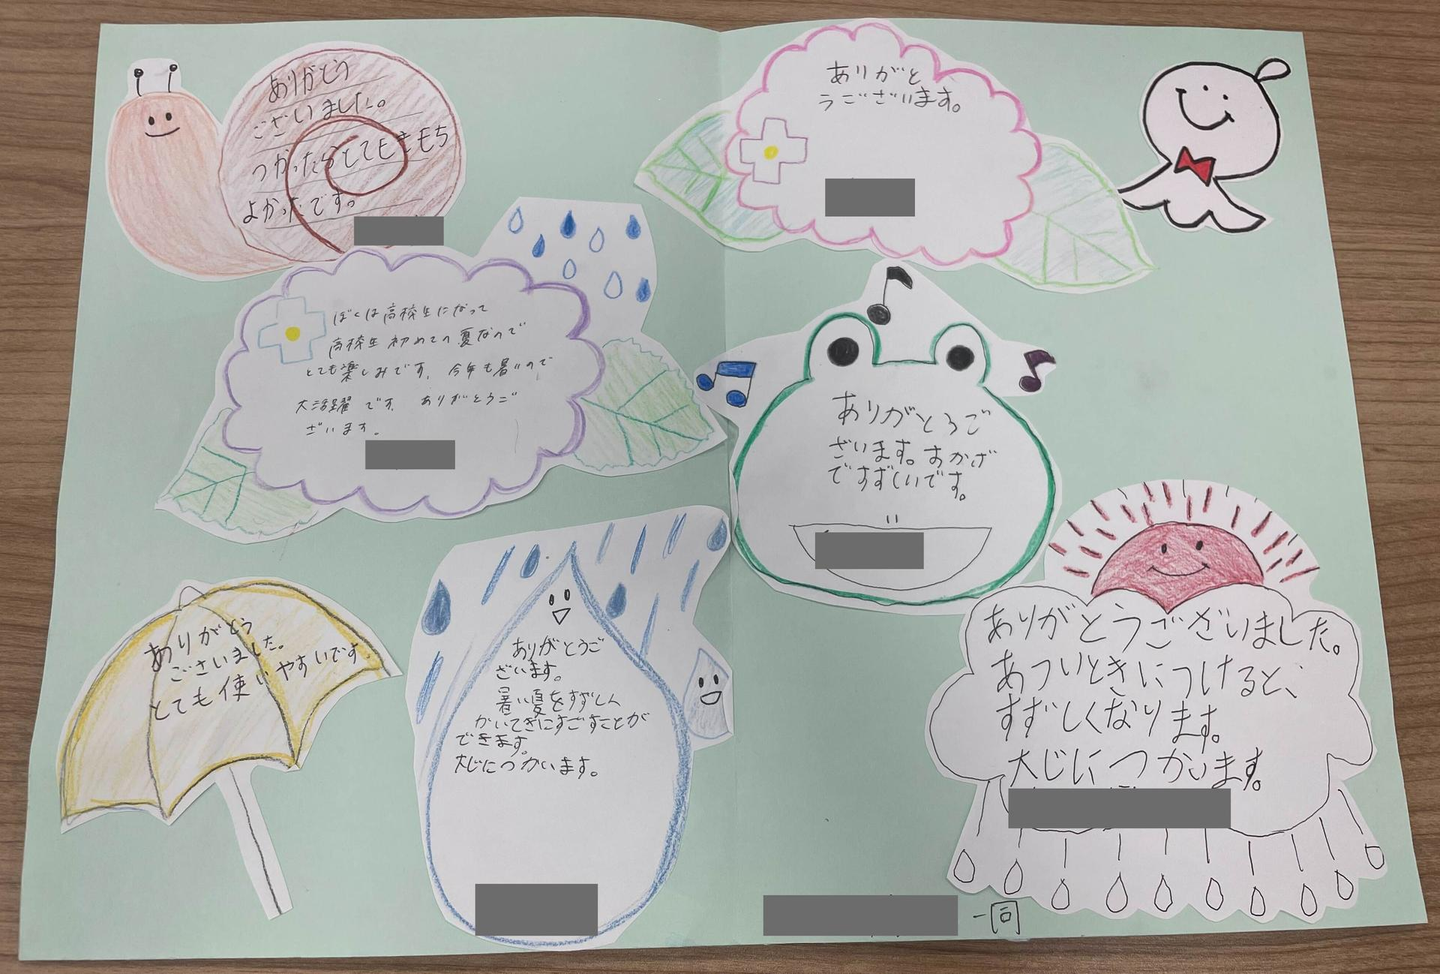 ありがとう
ございました。
つかったらとてもきもち
よかったです。
ありがと
うございます。
ぼくは高校生になって
高校生初めての夏なので
とても楽しみです。今年も暑いので
大活躍です。ありがとうご
ざいます。
ありがとうご
ざいます。おかげ
ですずしいです。
ありがとう
ございました。
とても使いやすいです。
ありがとうご
ざいます。
暑い夏をすずしく
かいてきにすごすことが
できます。
大じにつかいます。
ありがとうございました。
あついときにつけると、
すずしくなります。
大じにつかいます。
一同